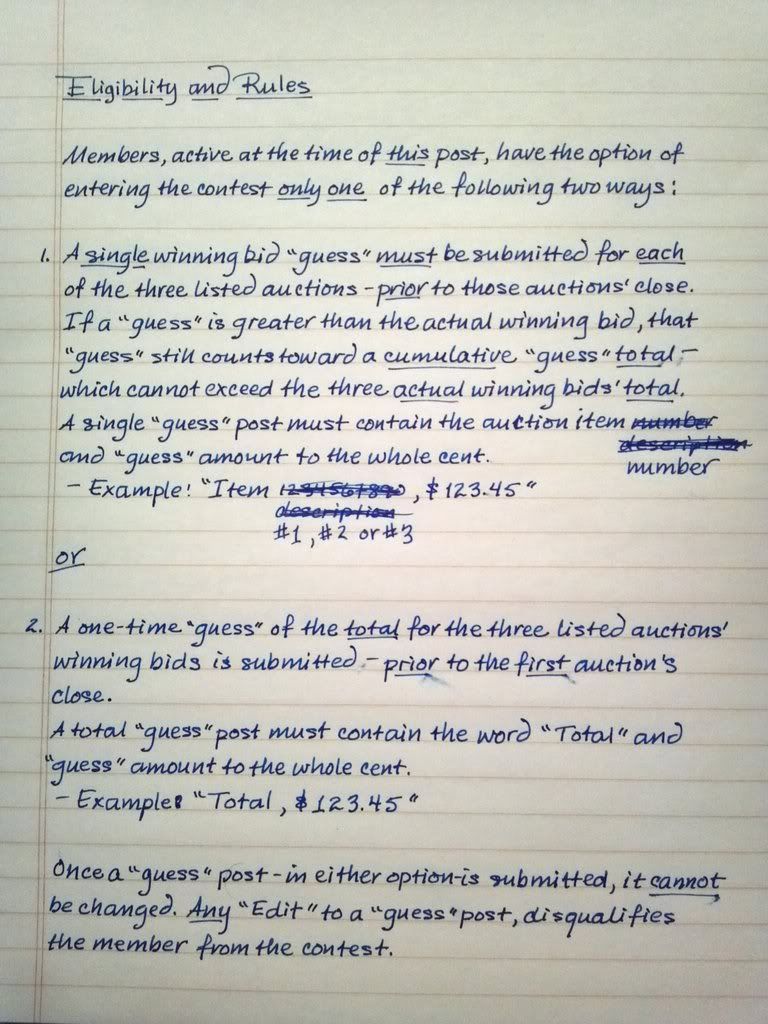 Eligibility and Rules
Members, active at the time of this post, have the option of
entering the contest only one of the following two ways:
1. A single winning bid "guess" must be submitted for each
of the three listed auctions - prior to those auctions' close.
If a "guess" is greater than the actual winning bid, that
"guess" still counts toward a cumulative "guess" total -
which cannot exceed the three actual winning bids' total.
A single "guess" post must contain the auction item number
description
and "guess" amount to the whole cent.
number
- Example: "Item 1234567890, $123.45"
description
#1, #2 or #3
or
2. A one-time "guess" of the total for the three listed auctions'
winning bids is submitted - prior to the first auction's
close.
A total "guess" post must contain the word "Total" and
"guess" amount to the whole cent.
- Example: "Total, $123.45"
Once a "guess" post - in either option - is submitted, it cannot
be changed. Any "Edit" to a "guess" post, disqualifies
the member from the contest.